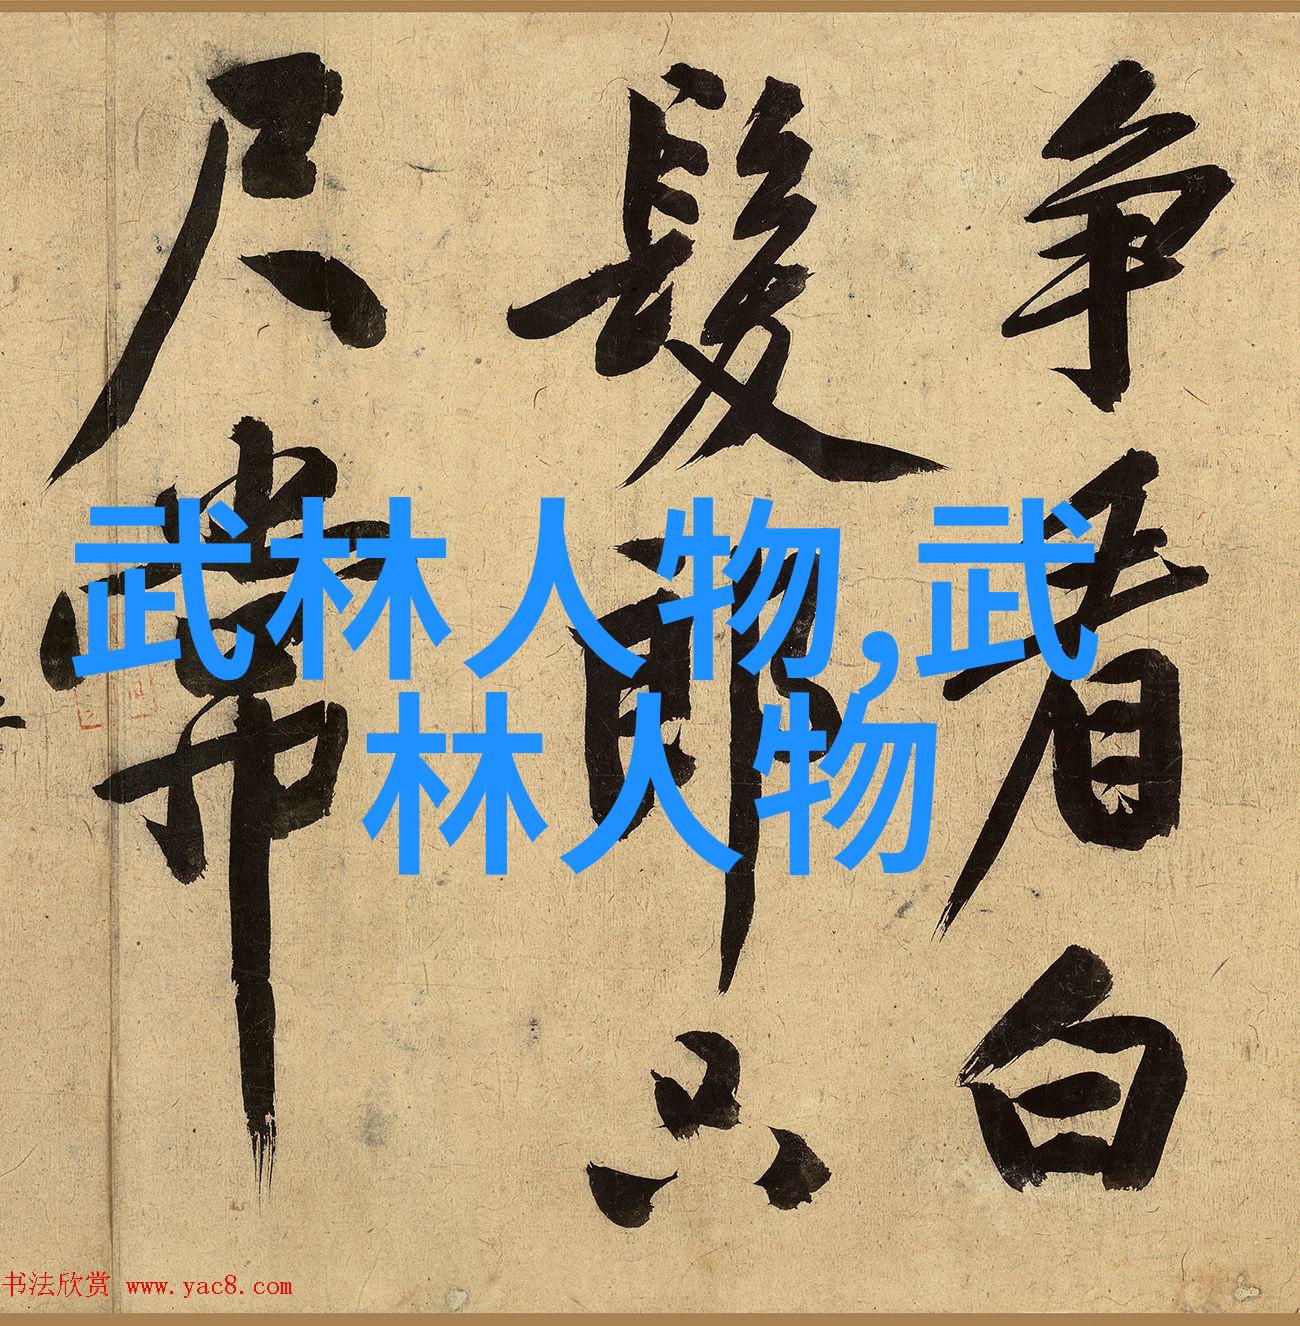 争看白
髮郎只
尺常
武林人物,武
林人物
书法欣赏 www.yac8.com